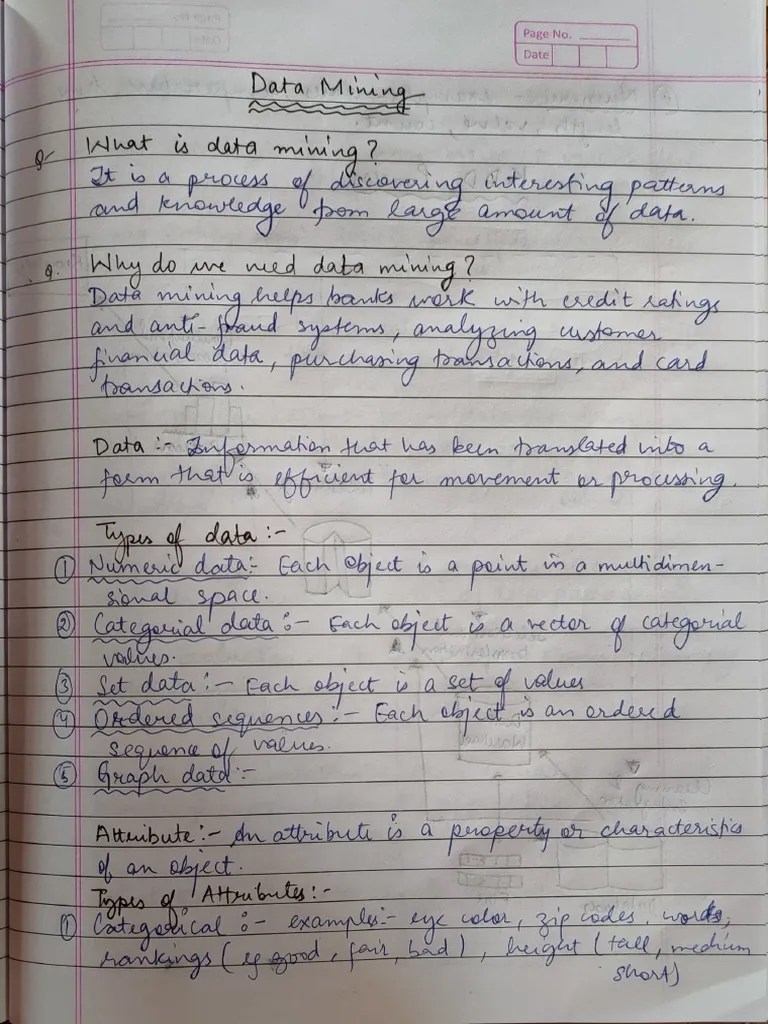 Page No.
Date
Data Mining
Q- What is data mining?
It is a process of discovering interesting patterns
and knowledge from large amount of data.
Q. Why do we need data mining?
Data mining helps banks work with credit ratings
and anti-fraud systems, analyzing customer
financial data, purchasing transactions, and card
transactions.
Data :- Information that has been translated into a
form that is efficient for movement or processing.
Types of data :-
① Numeric data:- Each object is a point in a multidimen-
sional space.
② Categorial data :- Each object is a vector of categorial
values.
③ Set data :- Each object is a set of values
④ Ordered sequences :- Each object is an ordered
sequence of values.
⑤ Graph data :-
Attribute :- An attribute is a property or characteristics
of an object.
Types of Attributes :-
① Categorical :- examples:- eye color, zip codes, words,
rankings (eg good, fair, bad), height (tall, medium
short)